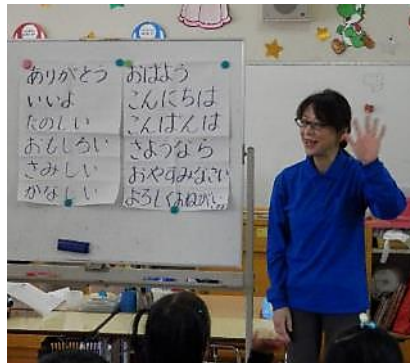 ありがとう
いいよ
たのしい
おもしろい
さみしい
かなしい
おはよう
こんにちは
こんばんは
さようなら
おやすみなさい
よろしくおねがい